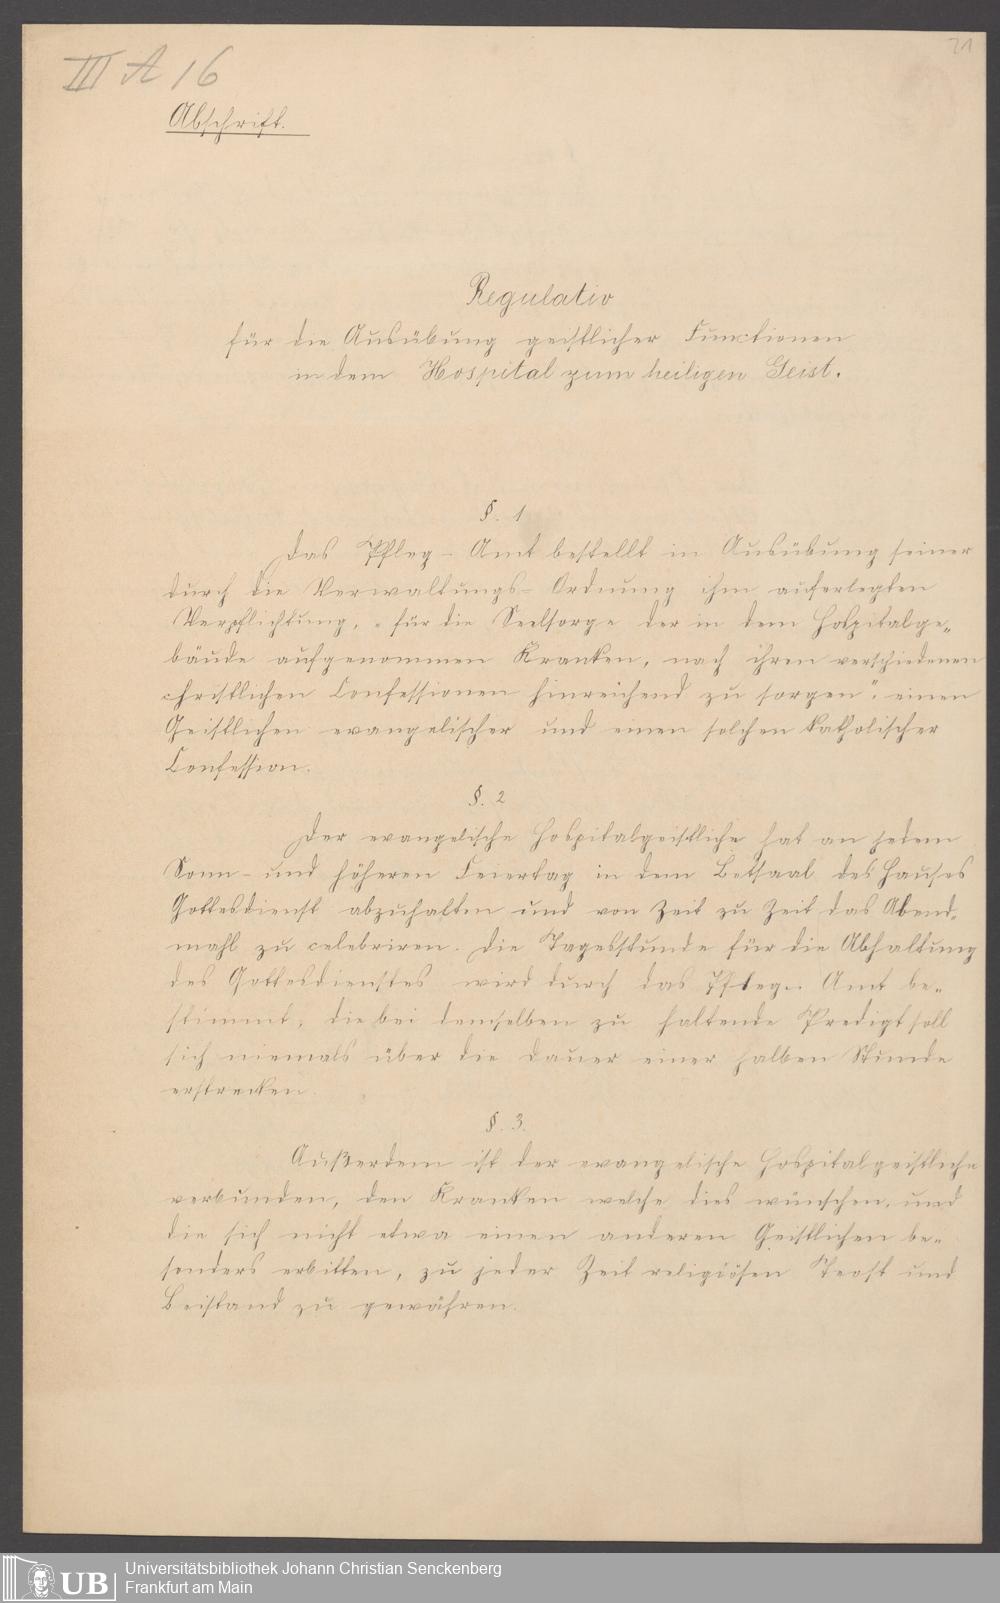 III A 16
21
Abschrift.
Regulativ
für die Ausübung geistlicher Functionen
in dem Hospital zum heiligen Geist.
§. 1
Das Pfleg-Amt bestellt in Ausübung seiner
durch die Verwaltungs-Ordnung ihm auferlegten
Verpflichtung, „für die Seelsorge der in dem Hospitalge-
bäude aufgenommen Kranken, nach ihren verschiedenen
christlichen Confessionen hinreichend zu sorgen“: einen
Geistlichen evangelischer und einen solchen katholischer
Confession.
§. 2
Der evangelische Hospitalgeistliche hat an jedem
Sonn- und höheren Feiertag in dem Betsaal des Hauses
Gottesdienst abzuhalten und von Zeit zu Zeit das Abend-
mahl zu celebriren. Die Tagesstunde für die Abhaltung
des Gottesdienstes wird durch das Pfleg-Amt be-
stimmt, die bei demselben zu haltende Predigt soll
sich niemals über die Dauer einer halben Stunde
erstrecken.
§. 3.
Außerdem ist der evangelische Hospitalgeistliche
verbunden, den Kranken welche dies wünschen, und
die sich nicht etwa einen anderen Geistlichen be-
sonders erbitten, zu jeder Zeit religiösen Trost und
Beistand zu gewähren.
UB
Universitätsbibliothek Johann Christian Senckenberg
Frankfurt am Main